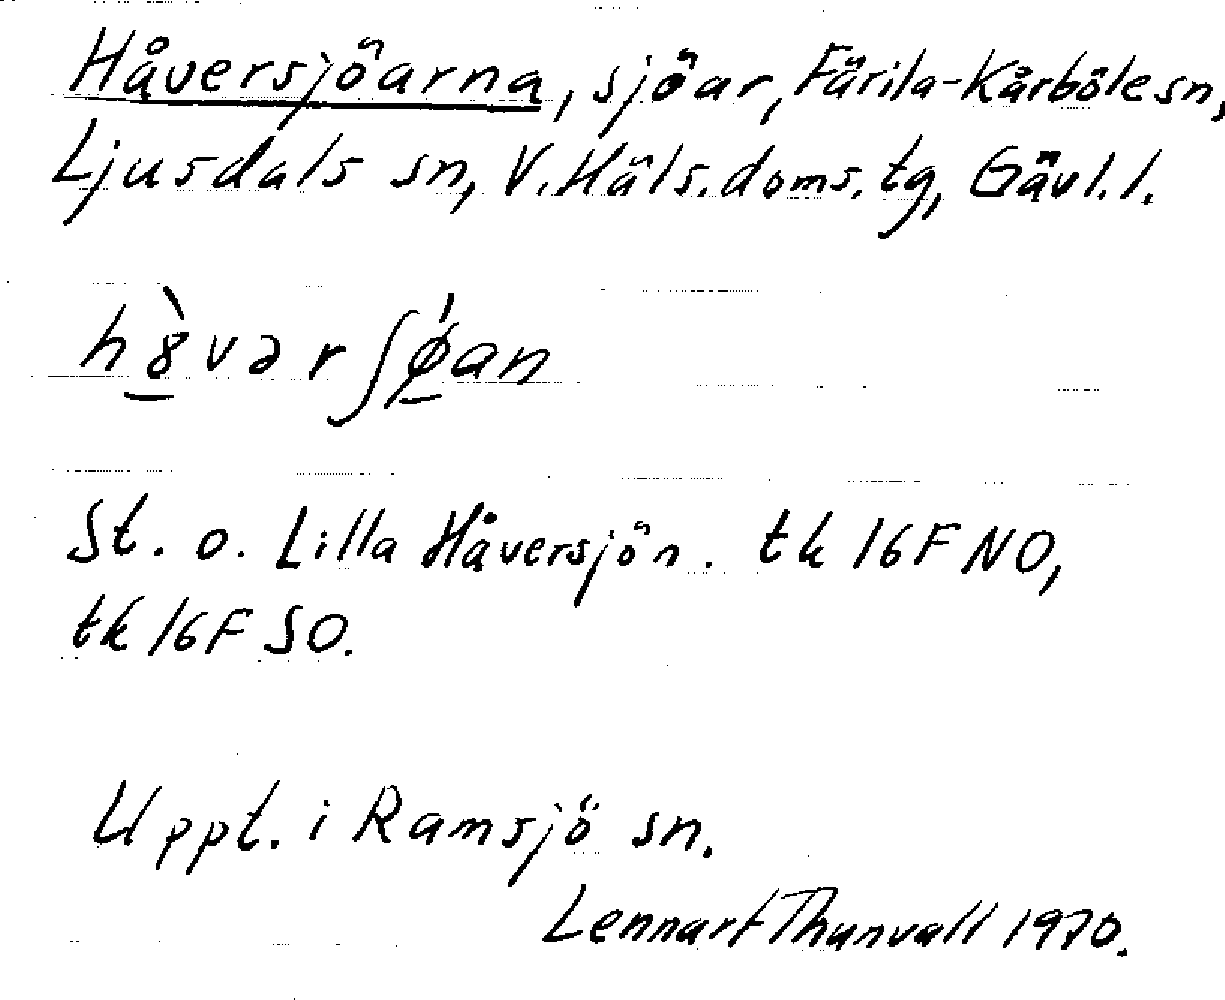 Håversjöarna, sjöar, Färila-Kårböle sn,
Ljusdals sn, V. Häls. doms. tg, Gävl. l.
hȣ̀vər ʃǿan
St. o. Lilla Håversjön. tk 16F NO,
tk 16F SO.
Uppt. i Ramsjö sn.
Lennart Thunvall 1970.